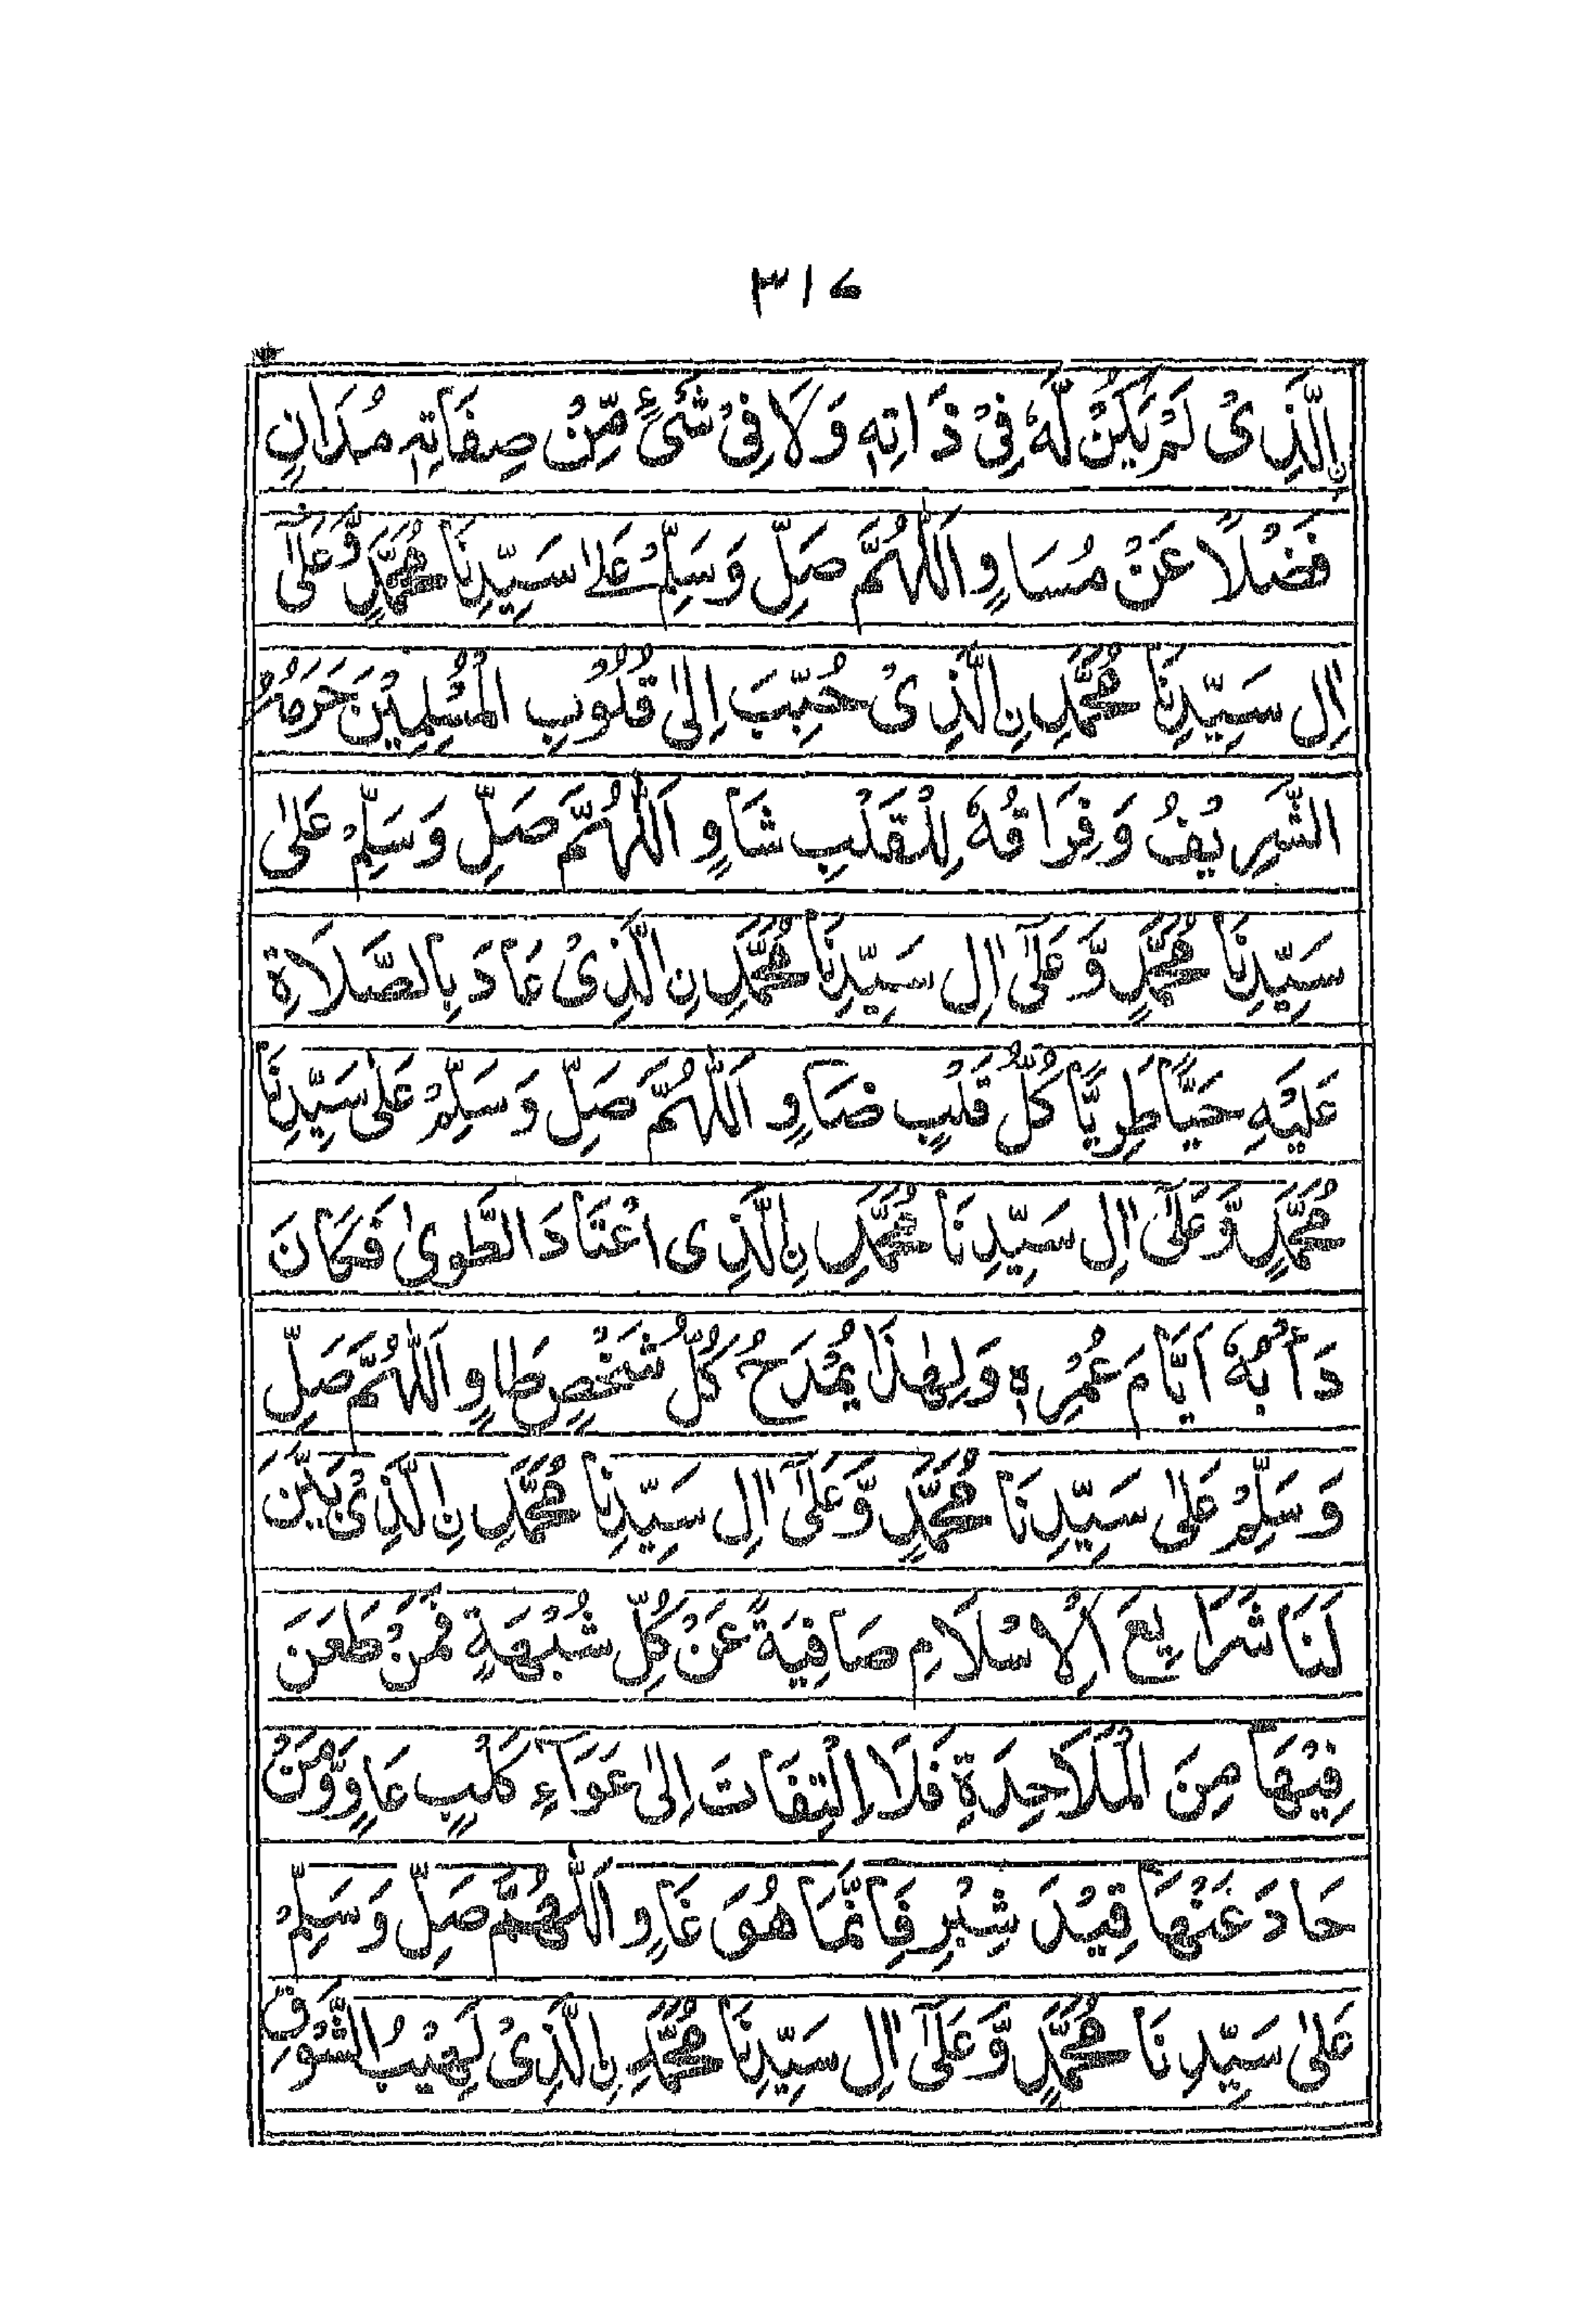 ٣١٤
نِالَّذِىْ لَمْ يَكُنْ لَّهٗ فِىْ ذَاتِهٖ وَلَا فِىْ شَىْءٍ مِّنْ صِفَاتِهٖ مُدَانٍ
فَضْلًا عَنْ مُسَاوٍ اَللّٰهُمَّ صَلِّ وَسَلِّمْ عَلٰى سَيِّدِنَا مُحَمَّدٍ وَّعَلٰٓى
اٰلِ سَيِّدِنَا مُحَمَّدِ نِالَّذِىْ حُبِّبَ اِلٰى قُلُوْبِ الْمُسْلِمِيْنَ حَرَمُهُ
الشَّرِيْفُ وَفِرَاقُهٗ لِلْقَلْبِ شَاوٍ اَللّٰهُمَّ صَلِّ وَسَلِّمْ عَلٰى
سَيِّدِنَا مُحَمَّدٍ وَّعَلٰٓى اٰلِ سَيِّدِنَا مُحَمَّدِ نِالَّذِىْ عَادَ بِالصَّلَاةِ
عَلَيْهِ حَيًّا طَرِيًّا كُلُّ قَلْبٍ ضَاوٍ اَللّٰهُمَّ صَلِّ وَسَلِّمْ عَلٰى سَيِّدِنَا
مُحَمَّدٍ وَّعَلٰٓى اٰلِ سَيِّدِنَا مُحَمَّدِ نِالَّذِى اعْتَادَ الطَّوىٰ فَكَانَ
دَأْبُهٗ اَيَّامَ عُمُرِهٖ وَلِهٰذَا يُمْدَحُ كُلُّ شَخْصٍ طَاوٍ اَللّٰهُمَّ صَلِّ
وَسَلِّمْ عَلٰى سَيِّدِنَا مُحَمَّدٍ وَّعَلٰٓى اٰلِ سَيِّدِنَا مُحَمَّدِ نِالَّذِىْ بَيَّنَ
لَنَا شَرَايِعَ الْاِسْلَامِ صَافِيَةً عَنْ كُلِّ شُبْهَةٍ فَمَنْ طَعَنَ
فِيْهَا مِنَ الْمَلَاحِدَةِ فَلَا اِلْتِفَاتَ اِلٰى عَوَآءِ كَلْبٍ عَاوٍ وَّمَنْ
حَادَ عَنْهَا قِيْدَ شِبْرٍ فَاِنَّمَا هُوَ غَاوٍ اَللّٰهُمَّ صَلِّ وَسَلِّمْ
عَلٰى سَيِّدِنَا مُحَمَّدٍ وَّعَلٰٓى اٰلِ سَيِّدِنَا مُحَمَّدِ نِالَّذِىْ لَهِيْبُ الشَّوْقِ